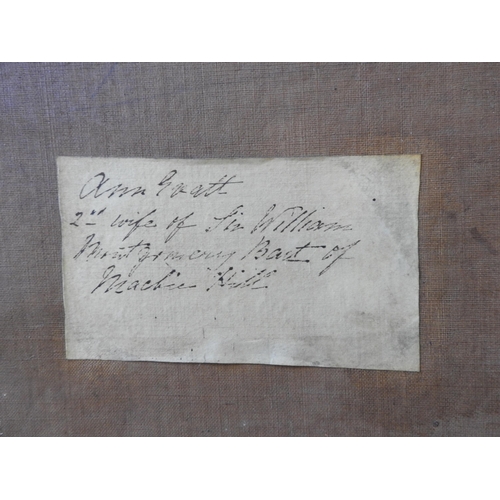 Ann Evatt
2nd wife of Sir William
Montgomery Bart of
Macbie Hill